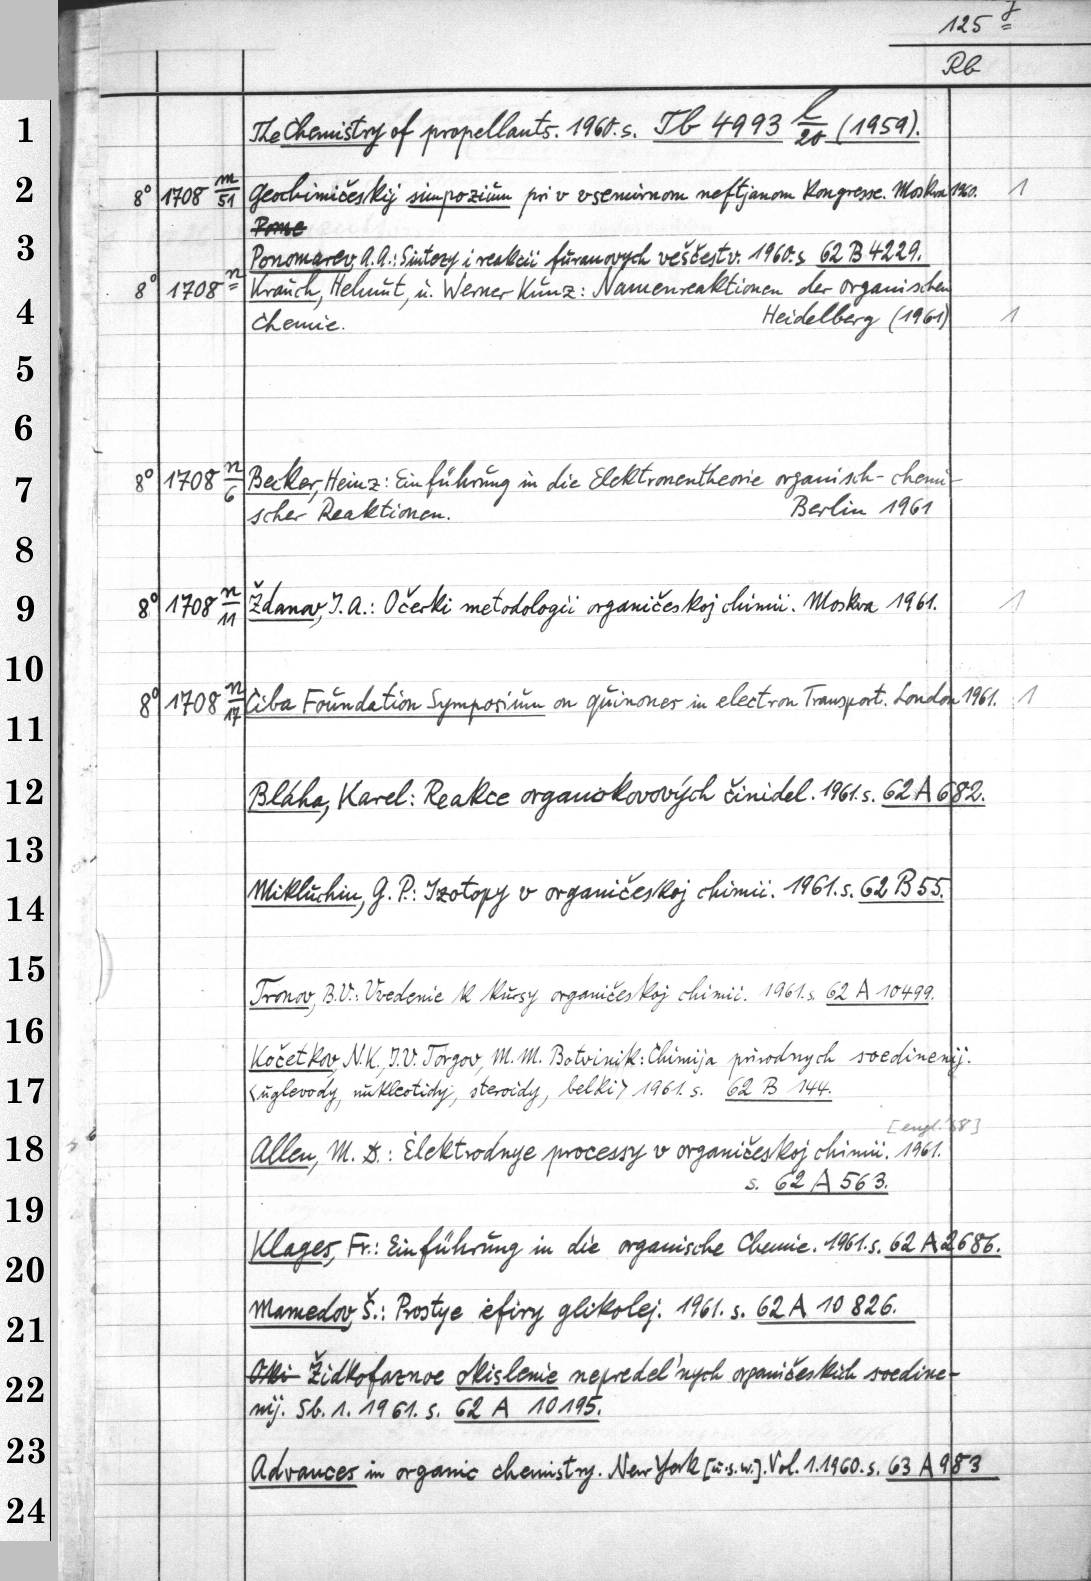 125 J
Rb
1
The Chemistry of propellants. 1960. s. Tb 4993 l/20 (1959).
2
8° 1708 m/51 Geochimičeskij simpozium pri v vsemirnom neftjanom Kongresse. Moskva 1960. 1
Pome
3
Ponomarev, A.A.: Sintezy i reakcii furanovych veščestv. 1960. s 62 B 4229.
8° 1708 n Krauch, Helmut, u. Werner Kunz: Namenreaktionen der organischen
4
Chemie. Heidelberg (1961) 1
5
6
7
8° 1708 n/6 Becker, Heinz: Einführung in die Elektronentheorie organisch-chemi-
scher Reaktionen. Berlin 1961
8
9
8° 1708 n/11 Ždanov, J. A.: Očerki metodologii organičeskoj chimii. Moskva 1961. 1
10
8° 1708 n/17 Ciba Foundation Symposium on quinones in electron Transport. London 1961. 1
11
12
Bláha, Karel: Reakce organokovových činidel. 1961. s. 62 A 682.
13
14
Mikluchin, G. P.: Izotopy v organičeskoj chimii. 1961. s. 62 B 55.
15
Tronov, B.V.: Vvedenie k kursy organičeskoj chimii. 1961. s 62 A 10499.
16
Kočetkov, N.K., J.V. Torgov, M. M. Botvinik: Chimija prirodnych soedinenij.
17
<uglevody, nukleotidy, steroidy, belki> 1961. s. 62 B 144.
[engl. 58]
18
Allen, M. D.: Èlektrodnye processy v organičeskoj chimii. 1961.
s. 62 A 563.
19
Klages, Fr.: Einführung in die organische Chemie. 1961. s. 62 A 2686.
20
Mamedov, Š.: Prostye èfiry glikolej. 1961. s. 62 A 10 826.
21
Oki Židkofaznoe okislenie nepredel'nych organičeskich soedine-
22
nij. Sb. 1. 1961. s. 62 A 10195.
23
Advances in organic chemistry. New York [u.s.w.]. Vol. 1. 1960. s. 63 A 983
24